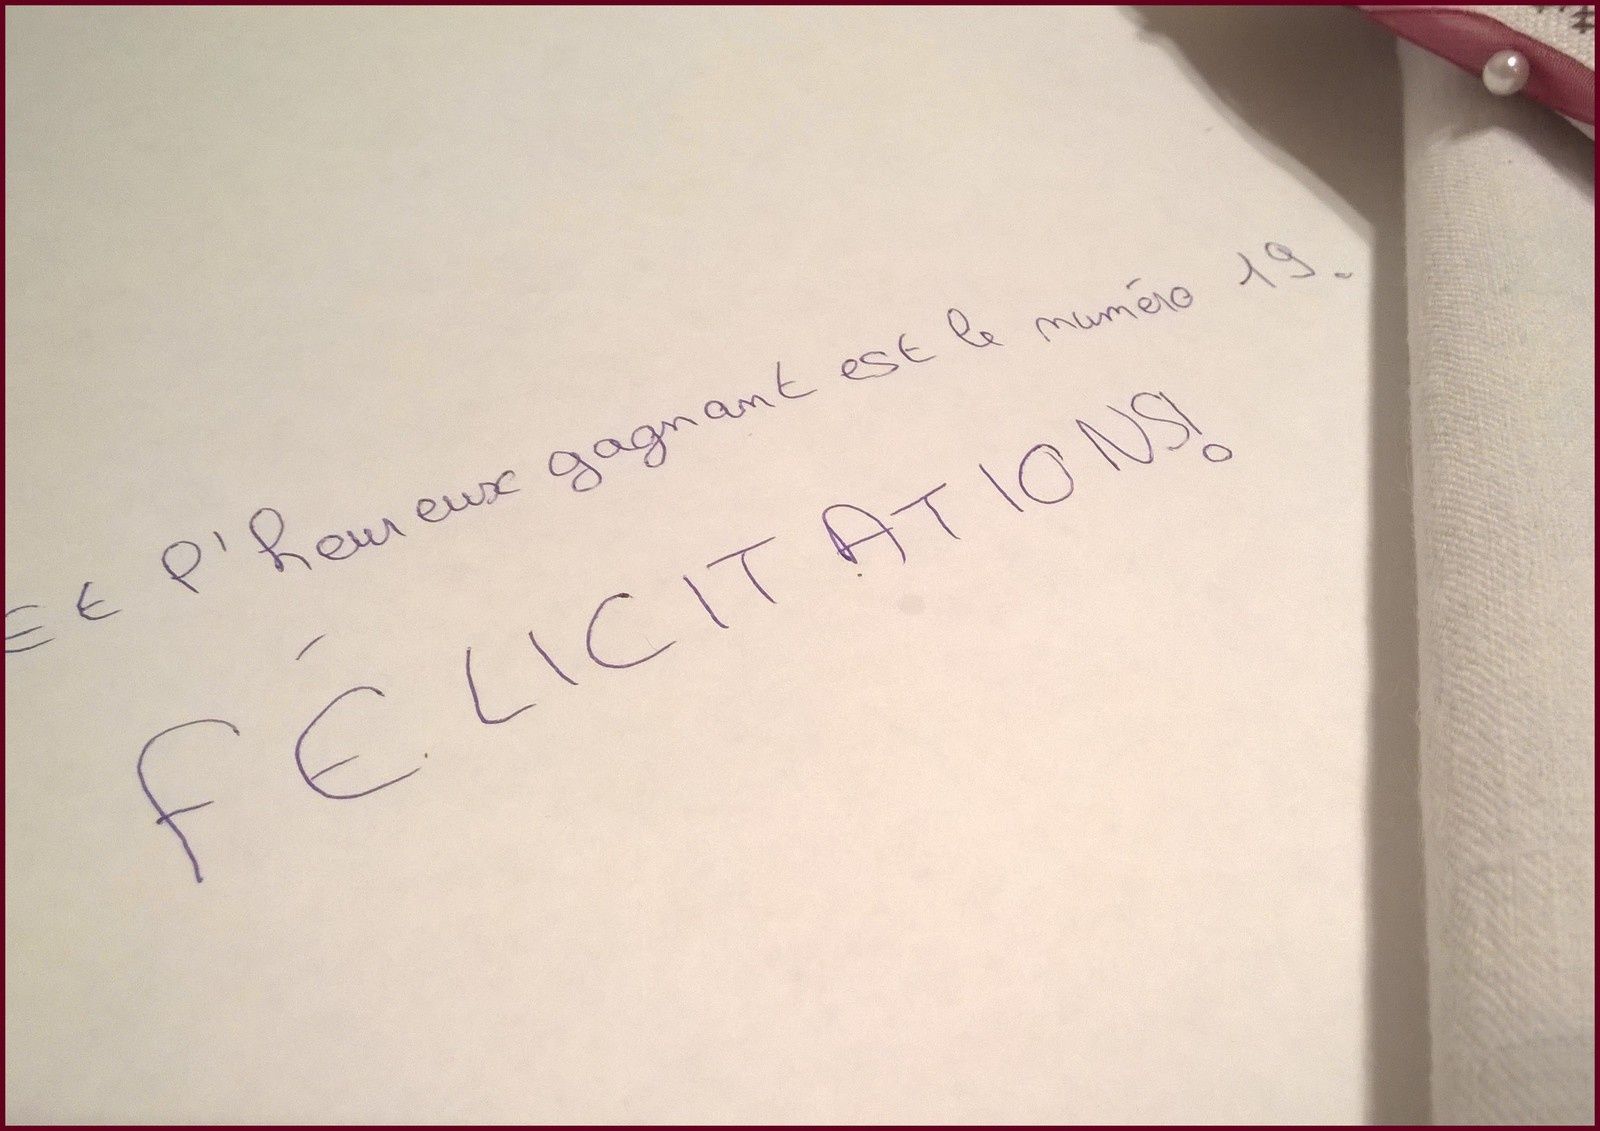 Et l'heureux gagnant est le numéro 19.
FÉLICITATIONS!